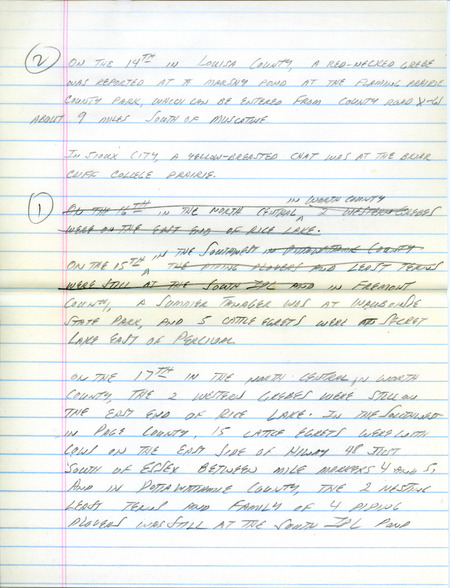 2 ON THE 14TH IN LOUISA COUNTY, A RED-NECKED GREBE
WAS REPORTED AT A MARSHY POND AT THE FLAMING PRAIRIE
COUNTY PARK, WHICH CAN BE ENTERED FROM COUNTY ROAD X-61
ABOUT 9 MILES SOUTH OF MUSCATINE
IN SIOUX CITY, A YELLOW-BREASTED CHAT WAS AT THE BRIAR
CLIFF COLLEGE PRAIRIE.
1 ON THE 16TH IN THE NORTH CENTRAL IN WORTH COUNTY 2 WESTERN GREBES
WERE ON THE EAST END OF RICE LAKE.
ON THE 15TH IN THE SOUTHWEST IN POTTAWATTAMIE COUNTY THE PIPING PLOVERS AND LEAST TERNS
WERE STILL AT THE SOUTH IPL AND IN FREMONT
COUNTY, A SUMMER TANAGER WAS AT WAUBONSIE
STATE PARK, AND 5 CATTLE EGRETS WERE AT SECRET
LAKE EAST OF PERCIVAL
ON THE 17TH IN THE NORTH CENTRAL, IN WORTH
COUNTY, THE 2 WESTERN GREBES WERE STILL ON
THE EAST END OF RICE LAKE. IN THE SOUTHWEST
IN PAGE COUNTY, 15 CATTLE EGRETS WERE WITH
COWS ON THE EAST SIDE OF HIWAY 48 JUST
SOUTH OF ESSEX BETWEEN MILE MARKERS 4 AND 5,
AND IN POTTAWATTAMIE COUNTY, THE 2 NESTING
LEAST TERNS AND FAMILY OF 4 PIPING
PLOVERS WAS STILL AT THE SOUTH IPL POND